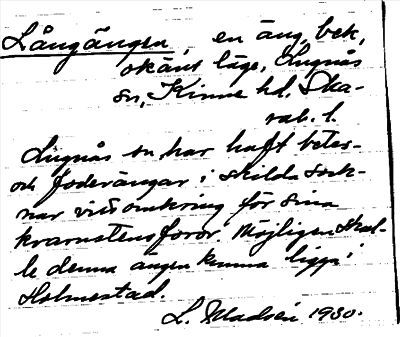 Långängen, en äng bek,
okänt läge, Lugnås
sn, Kinne hd. Ska-
rab. l.
Lugnås sn, har haft betes-
och foderängar i skilda sock-
nar vidt omkring för sina
kvarnstensforor. Möjligen skul-
le denna ängen kunna ligga i
Holmestad.
L. Madsén 1930.